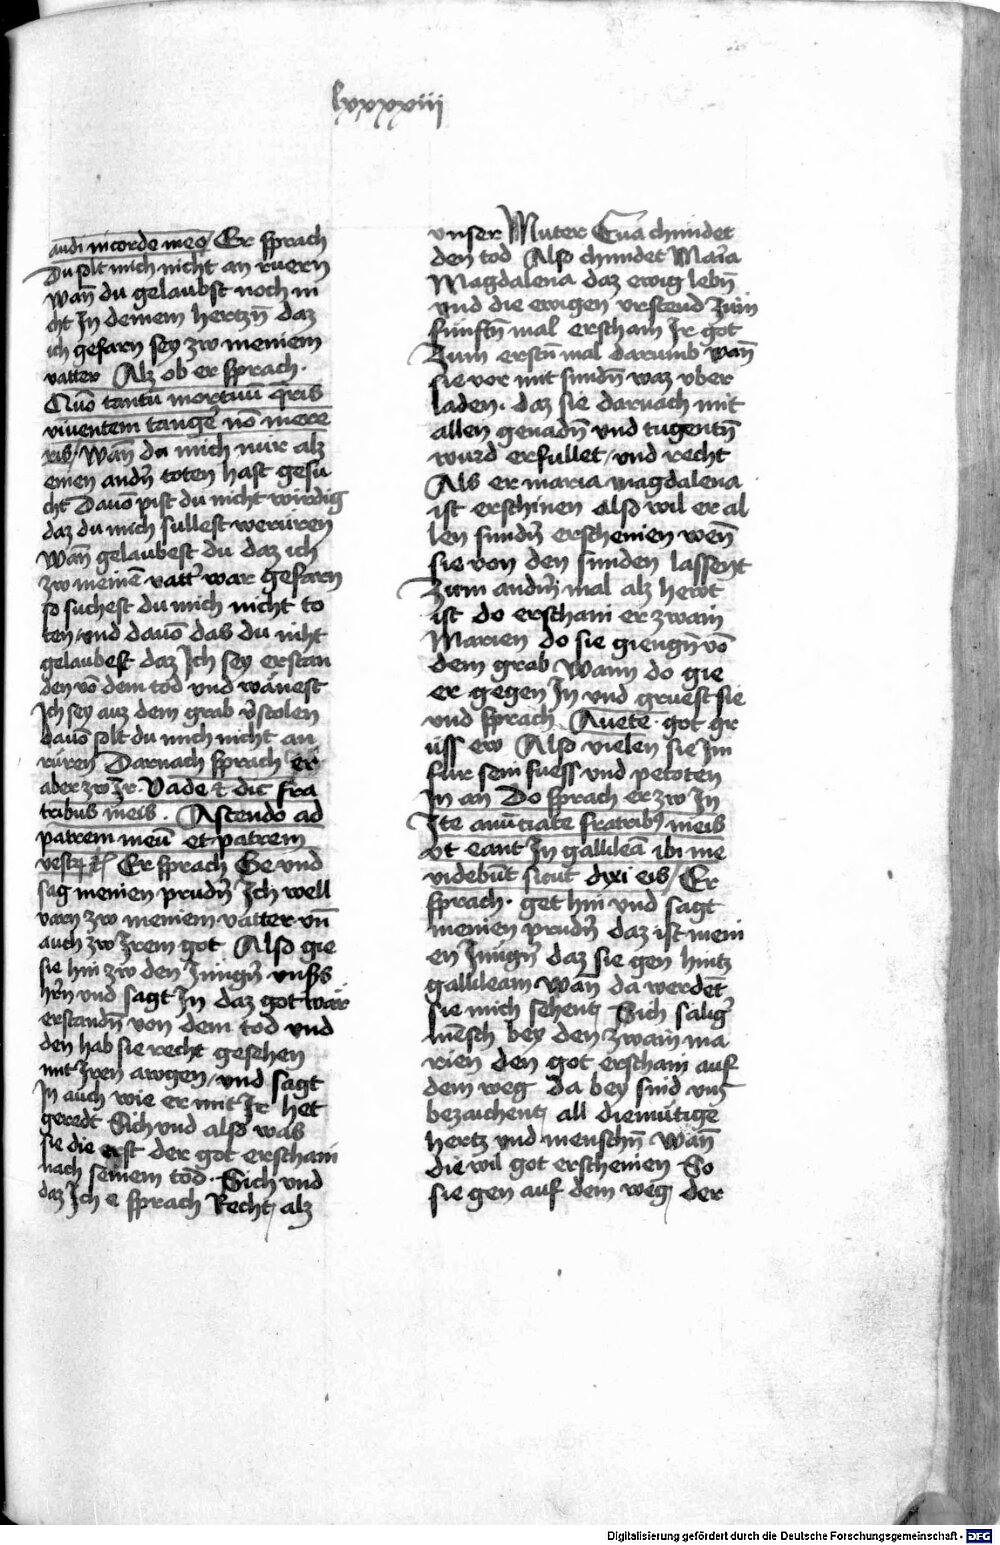 lxxxxiii
audi in corde meo / Er sprach
Du solt mich nicht an ruern
wañ du gelaubst noch ni
cht In deinem hertzñ daz
ich gefarn sey zw meinem
vatter Alz ob er sprach.
Quō tantū mortuū q̄ris
viuentem tangeꝰ nō mere
ris / Wañ du mich nur alz
einen andñ toten hast gesu
cht Dauō pist du nicht wirdig
daz du mich sullest werüren
Wañ gelaubest du daz ich
zw meinē vattꝰ war gefarn
so suchest du mich nicht to
ten / vnd dauō das du niht
gelaubest daz Ich sey erstan
den vō dem tod vnd wänest
Ich sey auz dem grab v̾stolen
dauō solt du mich nicht an
rüren Darnach sprach er
aber zw Ir. Vade ⁊ dic fra
tribus meis. Ascendo ad
patrem meū et patrem
vestꝝ ⁊c̄ Er sprach Ge vnd
sag meinen prudn̄ Ich well
varn zw meinem vatter vn̄
auch zw Irem got Also gie
sie hin zw den Jungn̄ vnsꝰs
hrñ vnd sagt In daz got wär
erstandñ von dem tod vnd
den hab sie recht gesehen
mit Iren awgen / vnd sagt
In auch wie er mit Ir het
geredt Sich vnd also was
sie die erst der got erschain
nach seinem tod. Sich vnd
daz Ich e sprach Recht alz
vnser Muter Eua chundet
den tod Also chundet Maria
Magdalena daz ewig lebñ
vnd die ewigen vrstend Zum
funftñ mal erschain Ir got
Zum erstñ mal darumb wañ
sie vor mit sundñ waz vber
laden. daz sie darnach mit
allen genadñ vnd tugentñ
wurd erfullet / vnd recht
Als er maria magdalena
ist erschinen also wil er al
len sundn̄ erscheinen wen̄
sie von den sunden lassent
Zum andn̄ mal alz hewt
ist do erschain er zwain
Marien do sie giengñ vō
dem grab Wann do gie
er gegen In vnd gruest sie
vnd sprach Auete. got gr
üss ew Also vielen sie Im
fur sein fuess vnd petoten
In an Do sprach er zw In
Ite anūctiate fratribꝰ meis
vt eant In gallileā ibi me
videbūt sicut dixi eis / Er
sprach. get hin vnd sagt
meinen prudn̄ daz ist mein
en Jungn̄ daz sie gen hintz
gallileam wañ da werdēt
sie mich sehent Sich sälig̾
mēsch bey den zwain ma
rien den got erschain auf
dem weg da bey sind vns
bezaichent all diemütige
hertz vnd menschñ wañ
die wil got erscheinen So
sie gen auf dem weg der
Digitalisierung gefördert durch die Deutsche Forschungsgemeinschaft - DFG